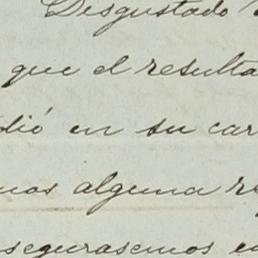 Desgustado
que el resulta
dió en su car
mos alguna re
segurasemos en